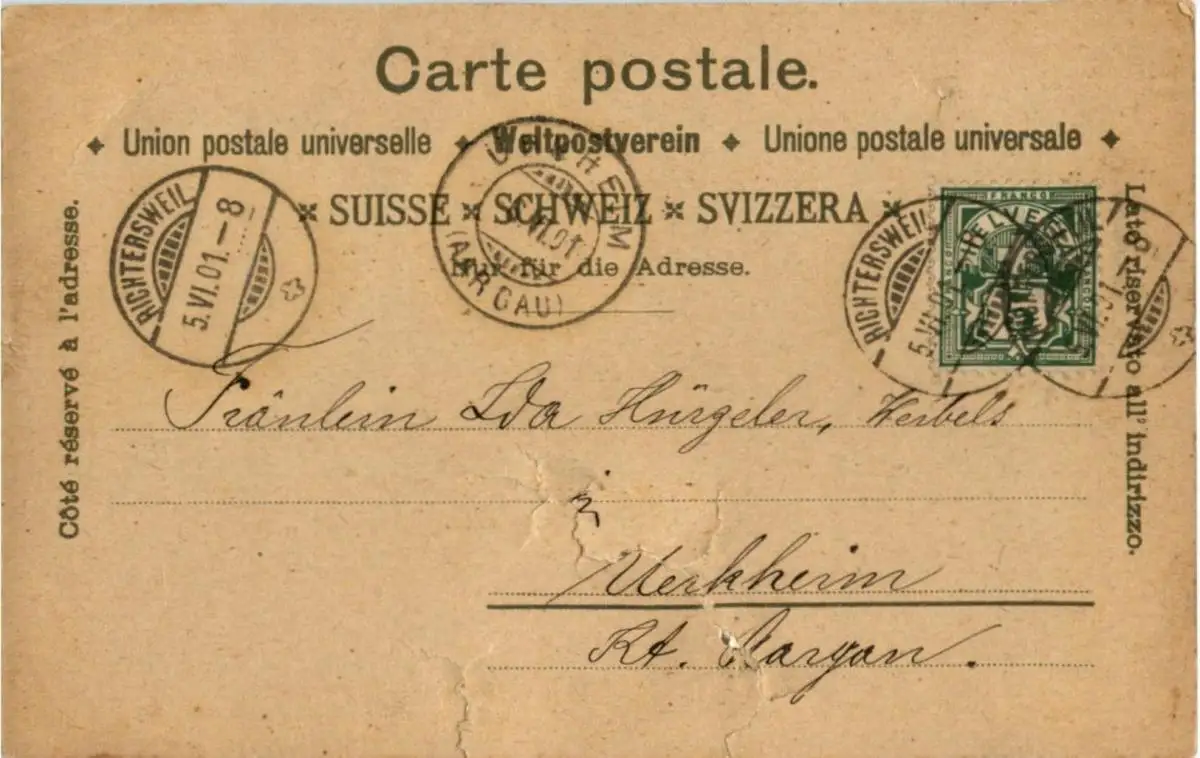 Carte postale.
Union postale universelle Weltpostverein Unione postale universale
SUISSE SCHWEIZ SVIZZERA
Nur für die Adresse.
Côté réservé à l'adresse.
Lato riservato all' indirizzo.
RICHTERSWEIL
5.VI.01.-8
(AARGAU)
VI.01
FRANCO
HELVE
RICHTERSWEIL
5.VI.01
Fräulein Ida Hürgeler, Weibels
Uerkheim
Kt. Aargau.